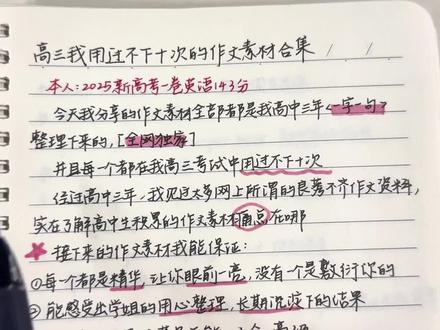 高三我用过不下十次的作文素材合集
本人:2025新高考一卷英语143分
今天我分享的作文素材全部都是我高中三年<一字一句>
整理下来的,[全网独家]
并且每一个都在我高三考试中用过不下十次
经过高中三年,我见过太多网上所谓的良莠不齐作文资料,
实在了解高中生积累的作文素材痛点在哪
接下来的作文素材我能保证:
①每一个都是精华,让你眼前一亮,没有一个是敷衍你的
②能感受出学姐的用心整理,长期沉淀下的结果